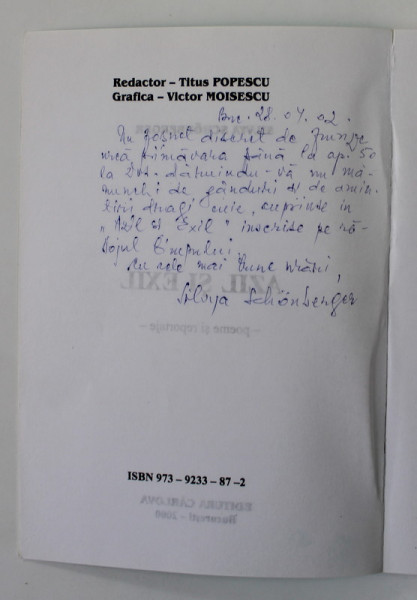 Redactor – Titus POPESCU
Grafica – Victor MOISESCU
Buc. 28.04.02.
Un foșnet discret de frunze
urcă primăvara până la ap. 50
la Dvs. dăruindu-vă un mă-
nunchi de gânduri și de amin
tiri dragi mie, cuprinse in
„Azil și Exil" inscrise pe ră-
bojul timpului.
Cu cele mai bune urări,
Silvya Schönberger
AZIL ȘI EXIL
– poeme și reportaje –
ISBN 973 – 9233 – 87 –2
EDITURA CÂRLOVA
București – 2000